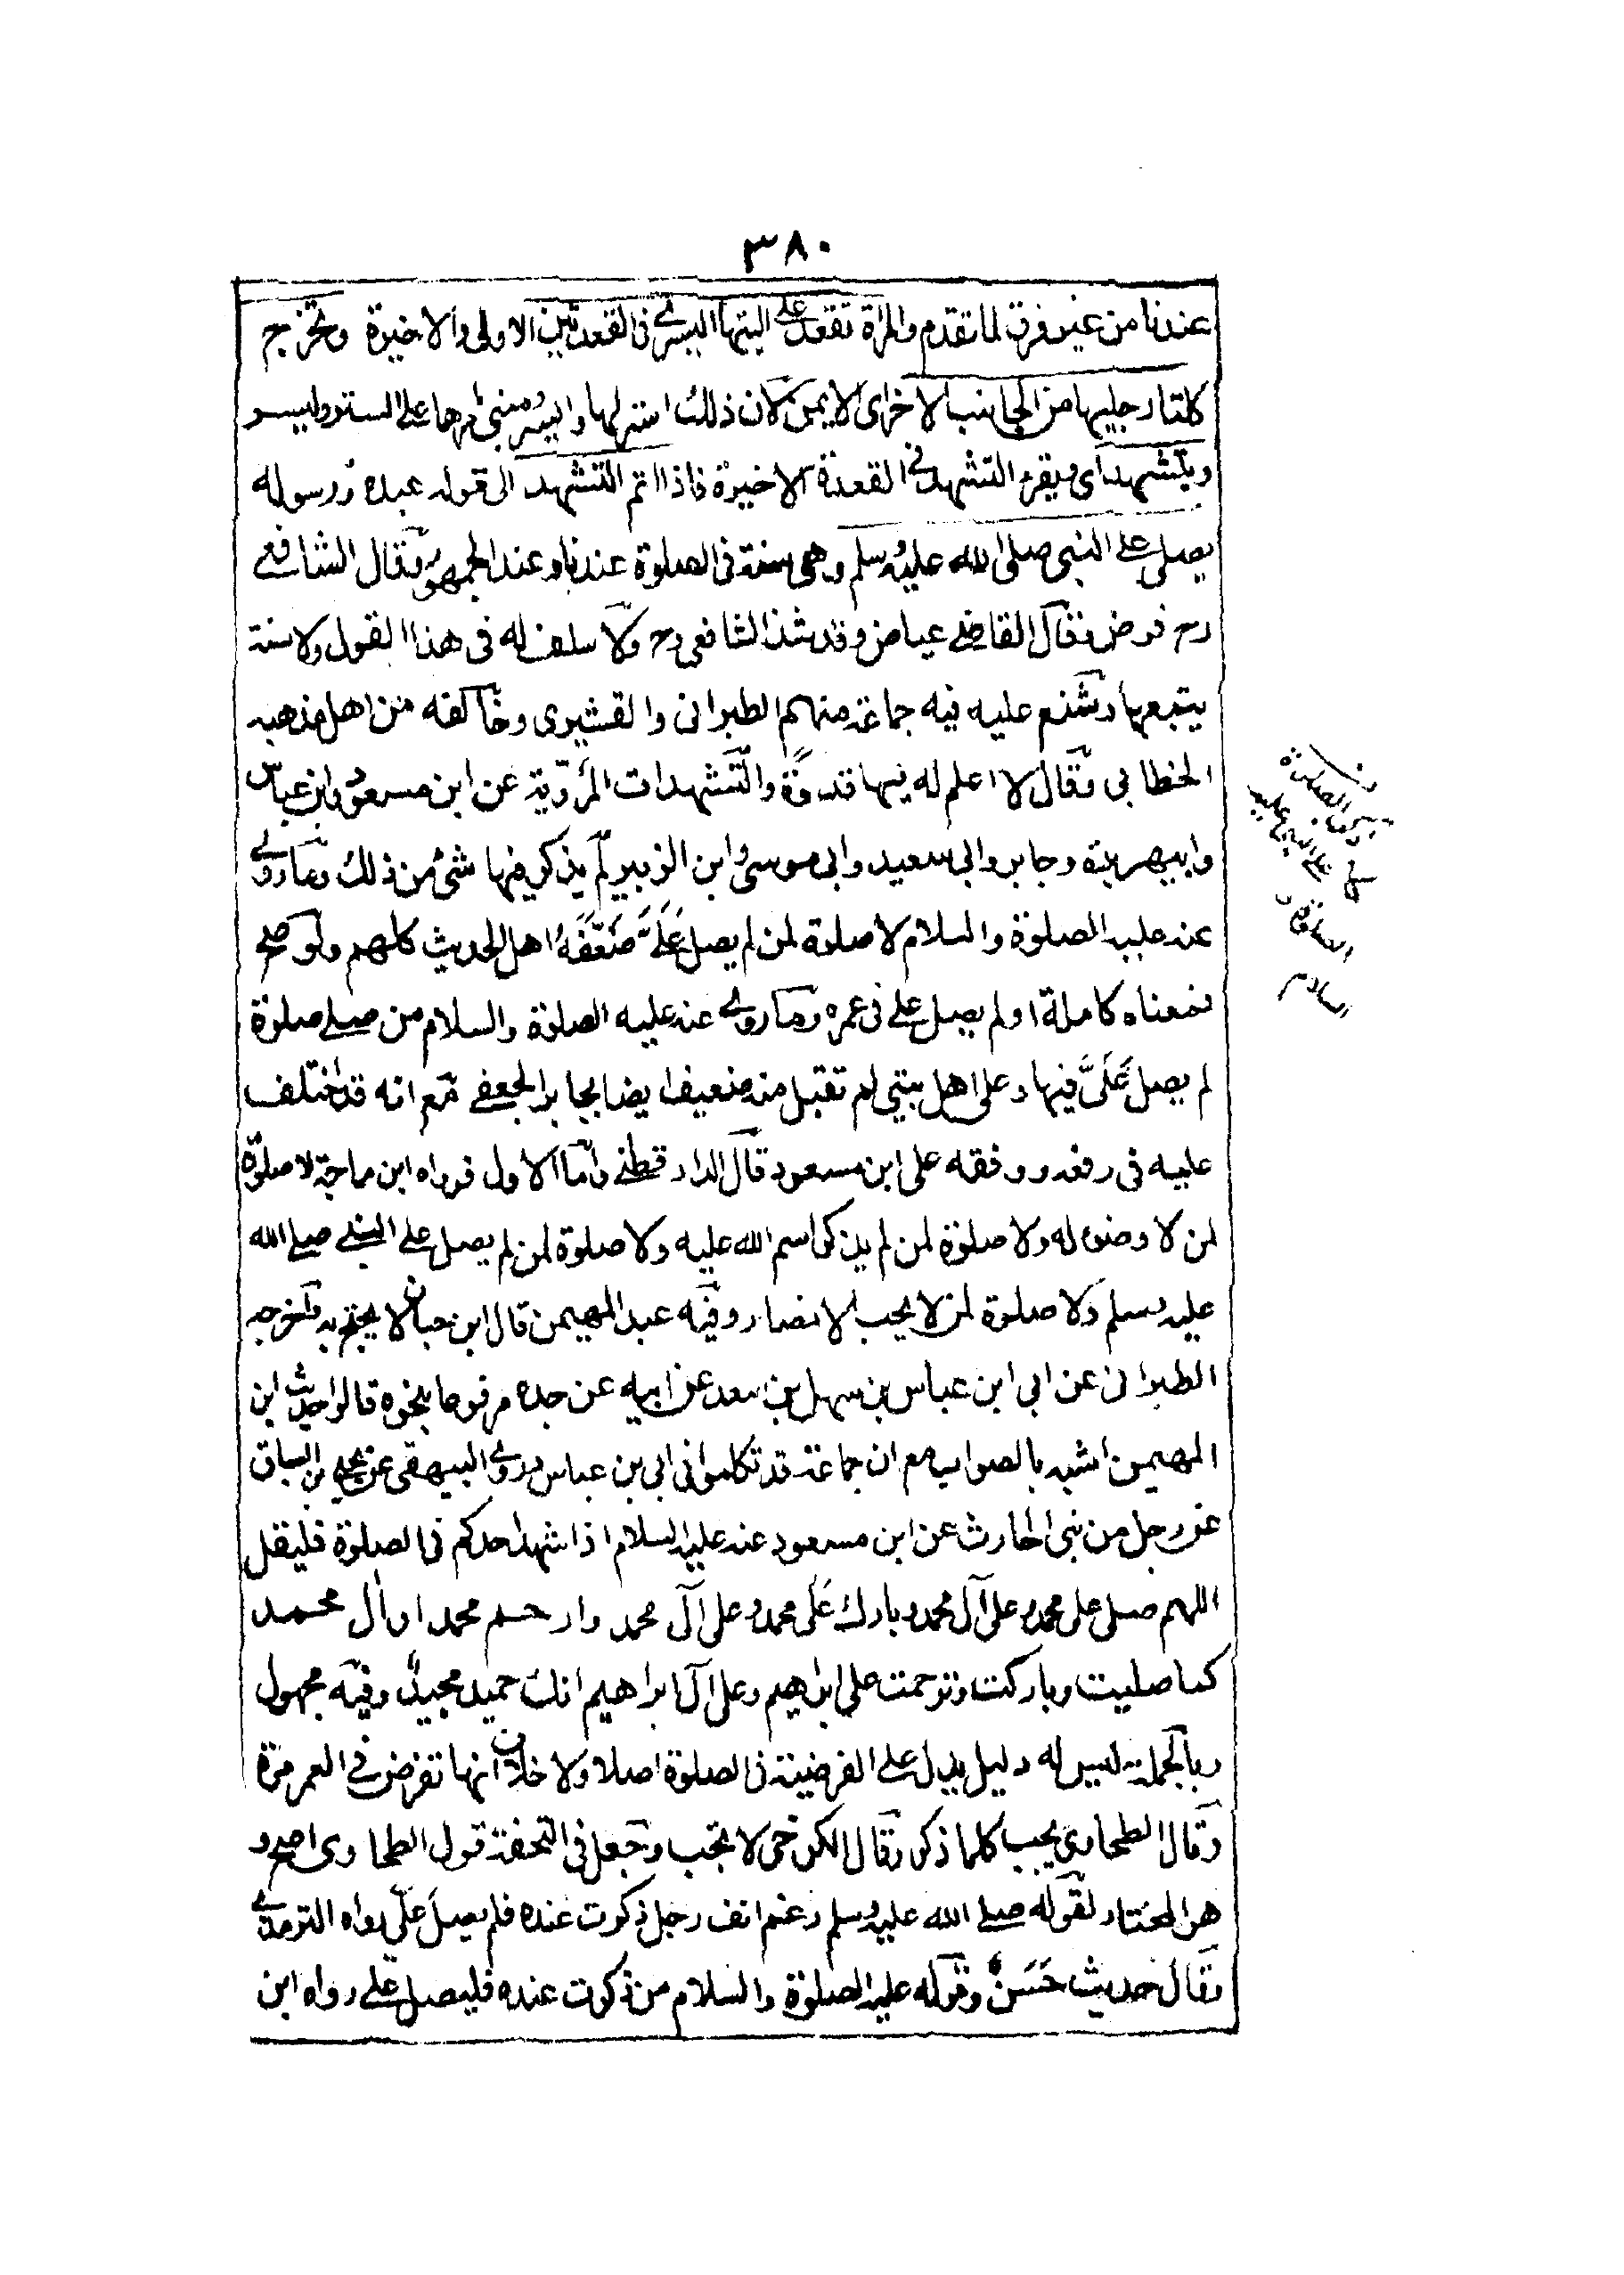 ٣٨٠
عندنا من غير فرق لما تقدم والمرأة تقعد على اليتها اليسرى فى القعدتين الاولى والاخيرة وتخرج
كلتا رجليها من الجانب الاخر اى الايمن لان ذلك استر لها وايسر ومبنى امرها على الستر واليسر
ويتشهد اى ويقرء التشهد فى القعدة الاخيرة فاذا اتم التشهد الى قوله عبده ورسوله
يصلى على النبى صلى الله عليه وسلم وهى سنة فى الصلوة عندنا وعند الجمهور وقال الشافعى
رح فرض وقال القاضى عياض وقد شذ الشافعى رح ولا سلف له فى هذا القول ولا سنة
يتبعها وشنع عليه فيه جماعة منهم الطبرانى والقشيرى وخالفه من اهل مذهبه
الخطابى وقال لا اعلم له فيها قدوة والتشهدات المروية عن ابن مسعود وابن عباس
وابيهريرة وجابر وابى سعيد وابى موسى وابن الزبير لم يذكر فيها شئ من ذلك وما روى
عنه عليه الصلوة والسلام لا صلوة لمن لم يصل عَلَىَّ ضَعَّفَهُ اهل الحديث كلهم ولو صح
فمعناه كاملة او لم يصل على فى عمره وما روى عنه عليه الصلوة والسلام من صلى صلوة
لم يصل عَلَىَّ فيها وعلى اهل بيتى لم تقبل منه ضعيف ايضا بجابر الجعفى مع انه قد اختلف
عليه فى رفعه ووقفه على ابن مسعود قال الدارقطنى واما الاول فرواه ابن ماجة لا صلوة
لمن لا وضوء له ولا صلوة لمن لم يذكر اسم الله عليه ولا صلوة لمن لم يصل على النبى صلى الله
عليه وسلم ولا صلوة لمن لا يحب الانصار وفيه عبد المهيمن قال ابن حبان لا يحتج به واخرجه
الطبرانى عن ابى ابن عباس بن سهل بن سعد عن ابيه عن جده مرفوعا بنحوه قالوا حديث ابن
المهيمن اشبه بالصواب مع ان جماعة قد تكلموا فى ابى بن عباس وروى البيهقى عن يحيى بن السباق
عن رجل من بنى الحارث عن ابن مسعود عنه عليه السلام اذا شهد احدكم فى الصلوة فليقل
اللهم صل على محمد وعلى آل محمد وبارك عَلَى محمد وعلى آل محمد وارحم محمدا وآل محمد
كما صليت وباركت وترحمت على ابراهيم وعلى آل ابراهيم انك حميد مجيد وفيه مجهول
وبالجملة ليس له دليل يدل على الفرضية فى الصلوة اصلا ولا خلاف انها تفرض فى العمر مرة
وقال الطحاوى يجب كلما ذكر وقال الكرخى لا تجب وجعل فى التحفة قول الطحاوى اصح و
هو المختار لقوله صلى الله عليه وسلم رغم انف رجل ذكرت عنده فلم يصل علىّ رواه الترمذى
وقال حديث حَسَنٌ وقوله عليه الصلوة والسلام من ذكرت عنده فليصل على رواه ابن
ذكر الصلوة
على النبى عليه
الصلوة و
السلام